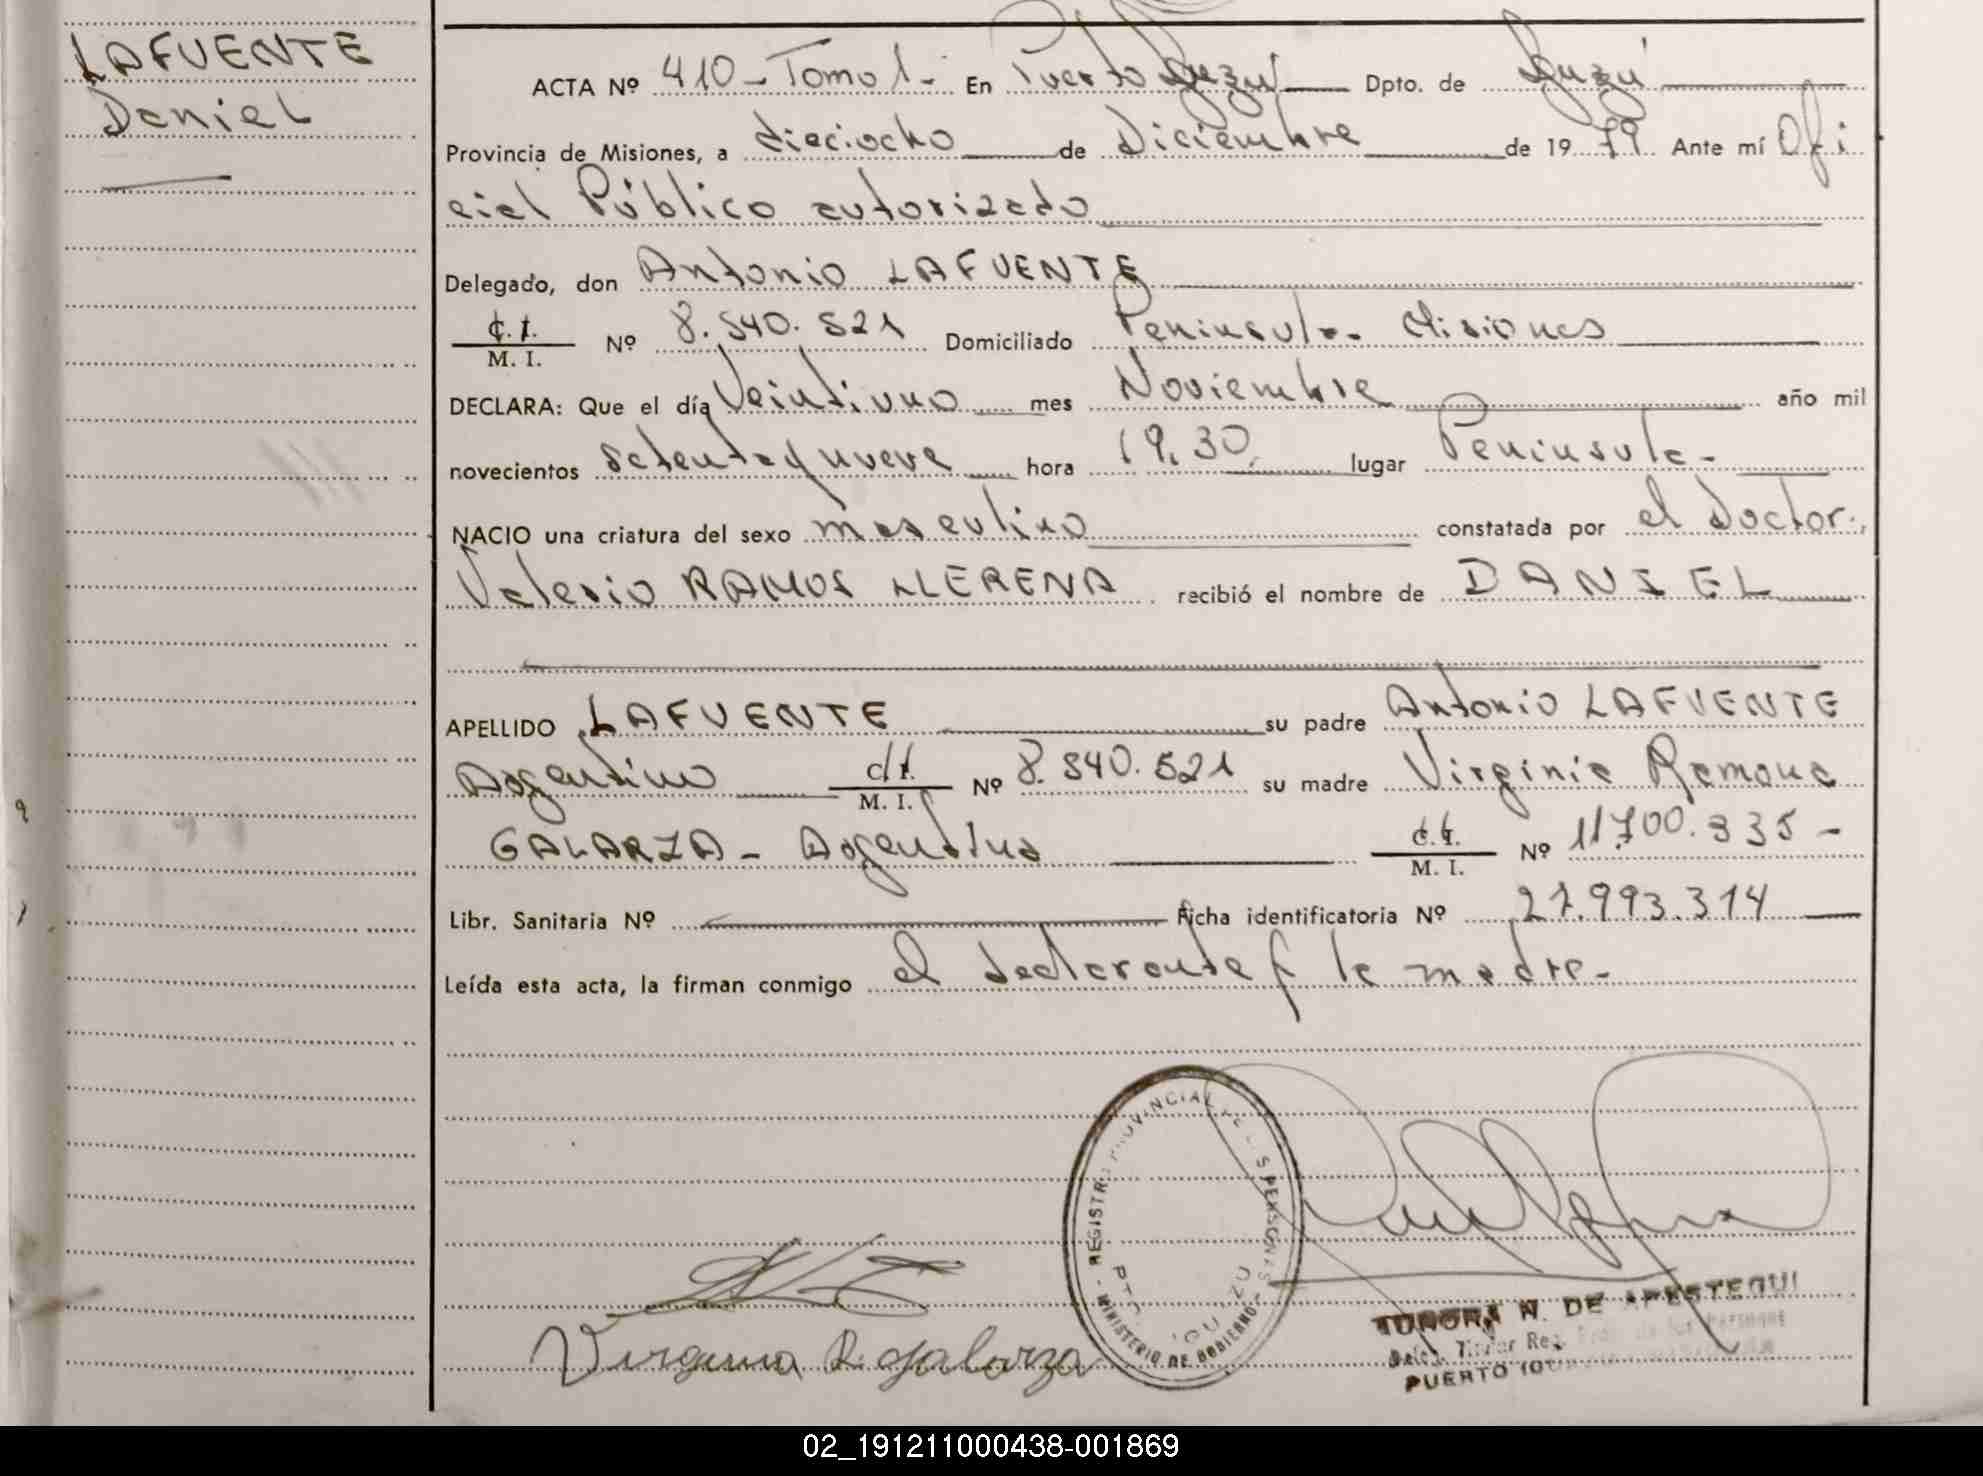 LAFUENTE
Daniel
ACTA Nº 410 - Tomo 1 - En Puerto Iguazú Dpto. de Iguazú
Provincia de Misiones, a dieciocho de Diciembre de 1979. Ante mí Ofi
cial Público autorizado
Delegado, don Antonio LAFUENTE
C.I. M. I. Nº 8.540.521 Domiciliado Peninsula - Misiones
DECLARA: Que el día Veintiuno mes Noviembre año mil
novecientos setenta y nueve hora 19,30, lugar Peninsula -
NACIO una criatura del sexo masculino constatada por el Doctor
Valerio RAMOS LLERENA recibió el nombre de DANIEL
APELLIDO LAFUENTE su padre Antonio LAFUENTE
Argentino C.I. M. I. Nº 8.540.521 su madre Virginia Ramona
GALARZA - Argentina C.I. M. I. Nº 11.700.335 -
Libr. Sanitaria Nº Ficha identificatoria Nº 27.993.314
Leída esta acta, la firman conmigo el declarante y la madre -
REGISTRO PROVINCIAL DE LAS PERSONAS
PTO. IGUAZU
MINISTERIO DE GOBIERNO
Virginia R. Galarza
N. DE APESTEGUI
PUERTO
02_191211000438-001869